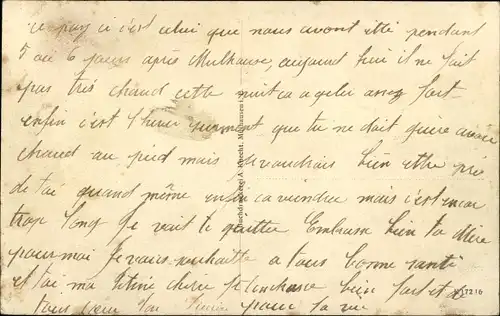 ce pay ci c'est celui que nous avont etté pendant
5 ou 6 jours après Mulhouse, aujourd hui il ne fait
pas très chaud cette nuit ca a geler assez fort
enfin c'est l'hiver que tu ne doit guère avoir
chaud au pied mais je voudrais bien etthe près
de toi quand même enfin ca viendra mais c'est encor
trop long Je vait te quitter Embrasse bien ta Mère
pour moi Je vous souhaitte a tous bonne santé
et toi ma titine cherie Je bien fort et de
tous cœur ton pour la vie
Buchdruckerei A. Mülhausen i.
7216